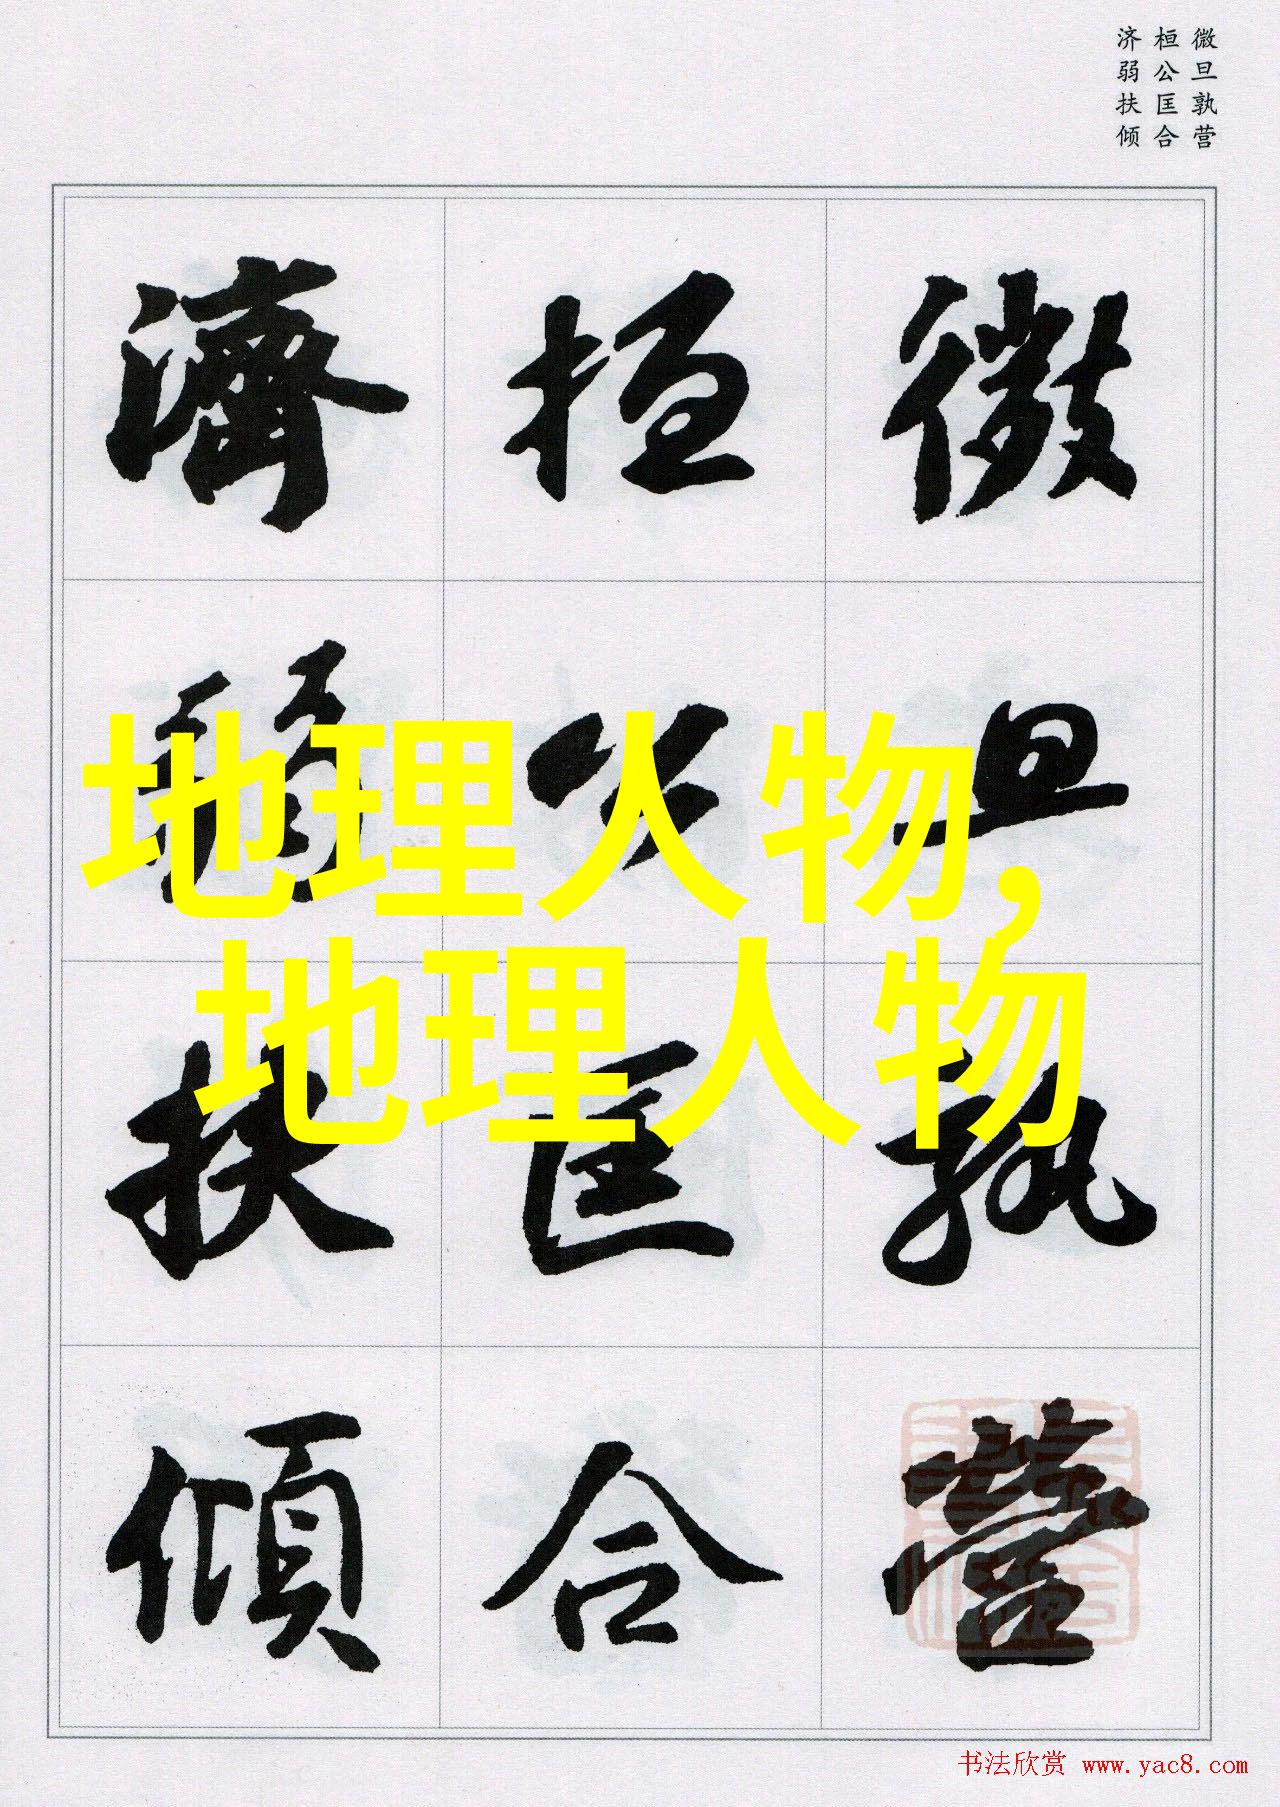 微旦孰营
桓公匡合
济弱扶倾
微旦孰營
桓公匡合
濟弱扶傾
地理人物,
地理人物
书法欣赏 www.yac8.com